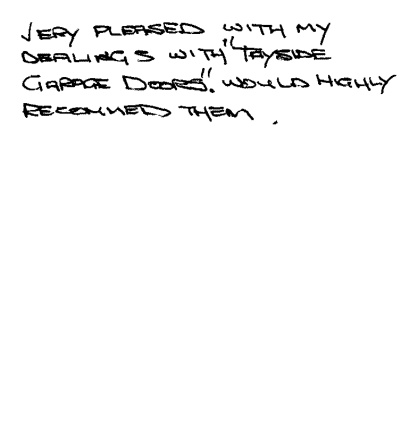 VERY PLEASED WITH MY
DEALINGS WITH "TAYSIDE
GARAGE DOORS". WOULD HIGHLY
RECOMMED THEM.